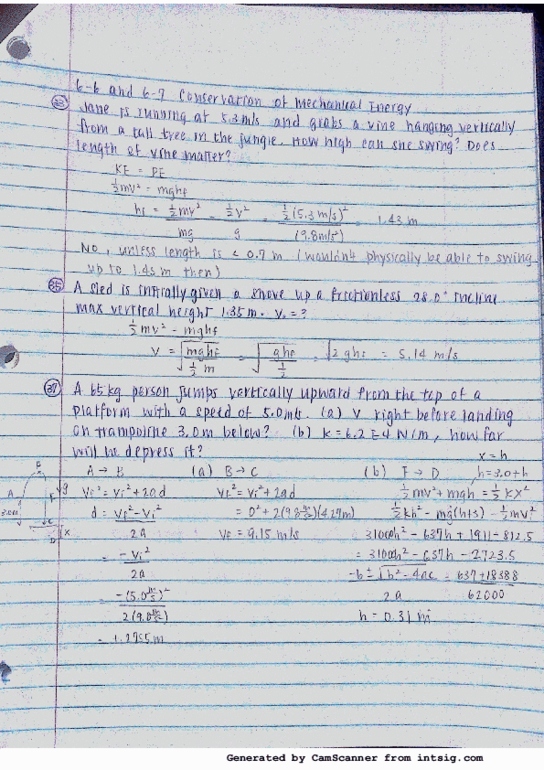 6-6 and 6-7 Conservation of Mechanical Energy
33 Jane is running at 5.3 m/s and grabs a vine hanging vertically
from a tall tree in the jungle. How high can she swing? Does
length of vine matter?
KE = PE
½mv² = mghf
hf = ½mv² / mg = ½v² / g = ½(5.3 m/s)² / (9.8m/s²) = 1.43 m
No, unless length is < 0.7 m (wouldn't physically be able to swing
up to 1.45 m then)
35 A sled is initially given a shove up a frictionless 28.0° incline
max vertical height 1.35m. V₁ = ?
½mv² = mghf
V = √(mghf / ½m) = √(ghf / ½) = √2ghf = 5.14 m/s
37 A 65kg person jumps vertically upward from the top of a
platform with a speed of 5.0m/s. (a) V right before landing
on trampoline 3.0m below? (b) k = 6.2 E4 N/m, how far
will he depress it?
x = h
A → B (a) B → C (b) F → D h = 3.0 + h
Vf² = Vi² + 2ad Vf² = Vi² + 2ad ½mv² + mgh = ½kx²
d = Vf² - Vi² / 2a = 0² + 2(9.8 m/s²)(4.27m) ½kh² - mg(h+3) - ½mv²
VF = 9.15 m/s 31000h² - 637h + 1911 - 812.5
= -Vi² / 2a = 31000h² - 637h - 2723.5
-b ± √b² - 4ac / 2a = 637 + 18388 / 62000
= -(5.0 m/s)² / 2(9.8 m/s²) h = 0.31 m
= 1.2755m
A B C D
3.0m
x
Generated by CamScanner from intsig.com